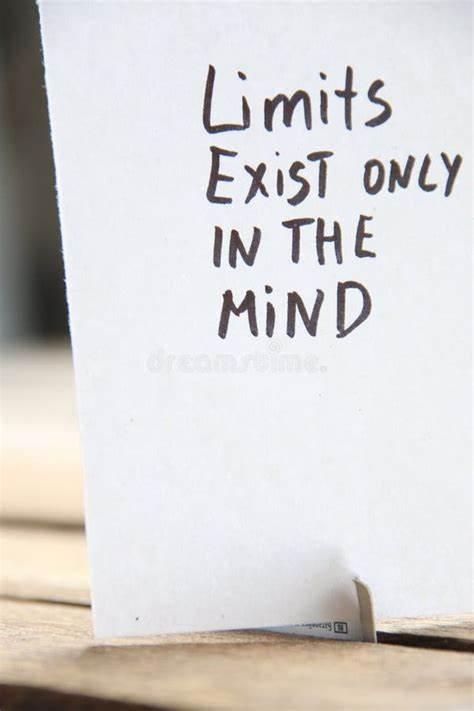 Limits
Exist only
in the
Mind
dreamstime